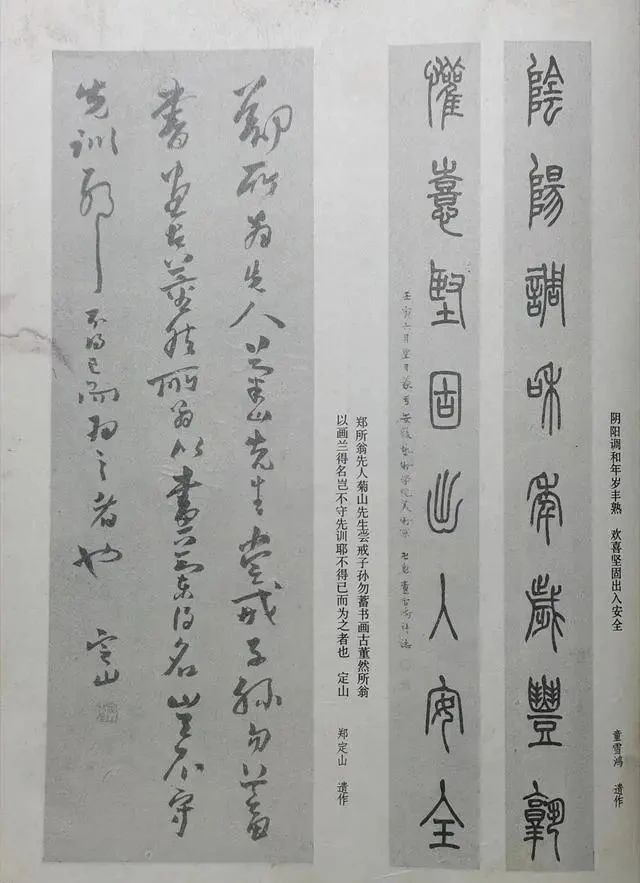 阴阳调和年岁丰熟 欢喜坚固出入安全
童雪鸿 遗作
陰陽調和年歲豐孰
懽憙堅固出入安全
壬寅六月 安徽藝術學院美術系
郑所翁先人菊山先生尝戒子孙勿蓄书画古董然所翁
以画兰得名岂不守先训耶不得已而为之者也 定山
郑定山 遗作
鄭所翁先人菊山先生嘗戒子孫勿蓄
書画古董然所翁以畫蘭得名豈不守
先訓耶 不得已而為之者也 定山